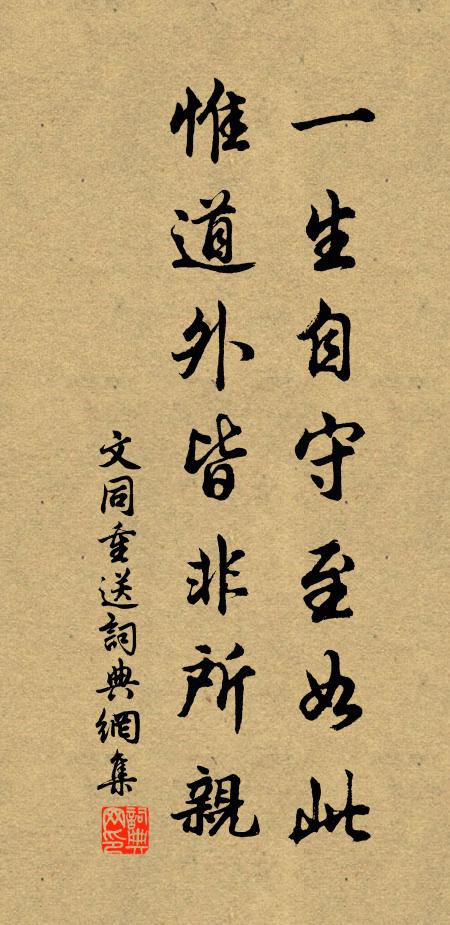 一生自守至如此
惟道外皆非所親
文同重送詞典網集
詞典網印